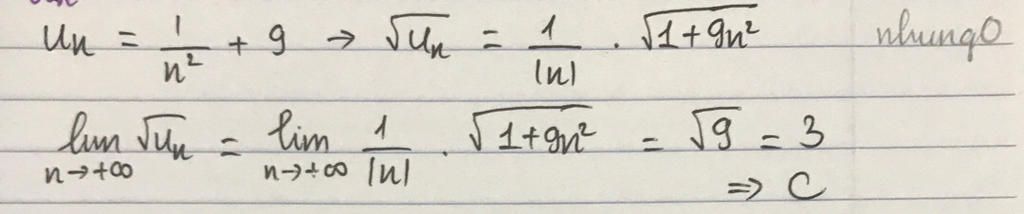 uₙ = 1/n² + 9 → √uₙ = 1/|n| . √(1+9n²) nhungO
lim n→+∞ √uₙ = lim n→+∞ 1/|n| . √(1+9n²) = √9 = 3
⇒ C